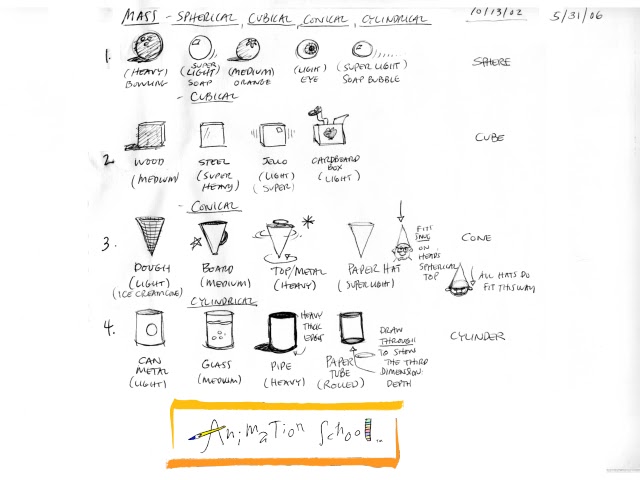 MASS - SPHERICAL, CUBICAL, CONICAL, CYLINDRICAL
10/13/02
5/31/06
1.
(HEAVY) BOWLING
SUPER (LIGHT) SOAP
(MEDIUM) ORANGE
(LIGHT) EYE
(SUPER LIGHT) SOAP BUBBLE
SPHERE
- CUBICAL
2.
WOOD (MEDIUM)
STEEL (SUPER HEAVY)
JELLO (LIGHT) (SUPER)
CARDBOARD BOX (LIGHT)
CUBE
- CONICAL
3.
DOUGH (LIGHT) (ICE CREAM CONE)
BOARD (MEDIUM)
TOP/METAL (HEAVY)
PAPER HAT (SUPER LIGHT)
FITS SNUG ON HEADS SPHERICAL TOP
CONE
ALL HATS DO FIT THIS WAY
CYLINDRICAL
4.
CAN METAL (LIGHT)
GLASS (MEDIUM)
PIPE (HEAVY)
HEAVY THCK EDGES
PAPER TUBE (ROLLED)
DRAW THROUGH TO SHOW THE THIRD DIMENSION. DEPTH
CYLINDER
AnimaTion School...